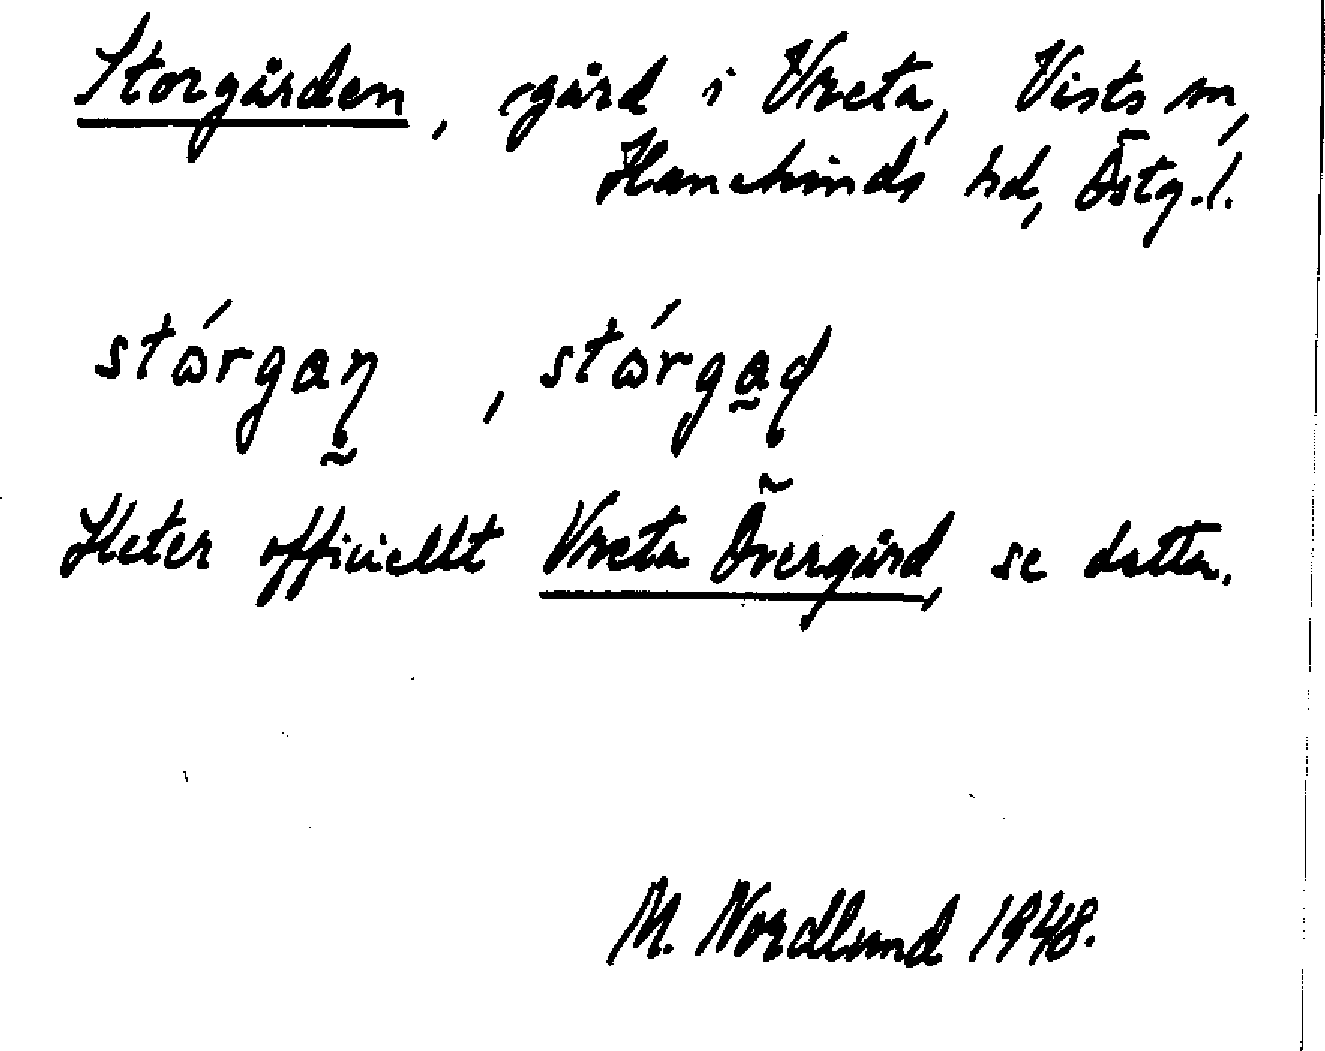 Storgården, gård i Vreta, Vists sn,
Hanekinds hd, Östg. l.
stórgaɳ, stórgaɖ
Heter officiellt Vreta Övergård, se detta.
M. Nordlund 1948.